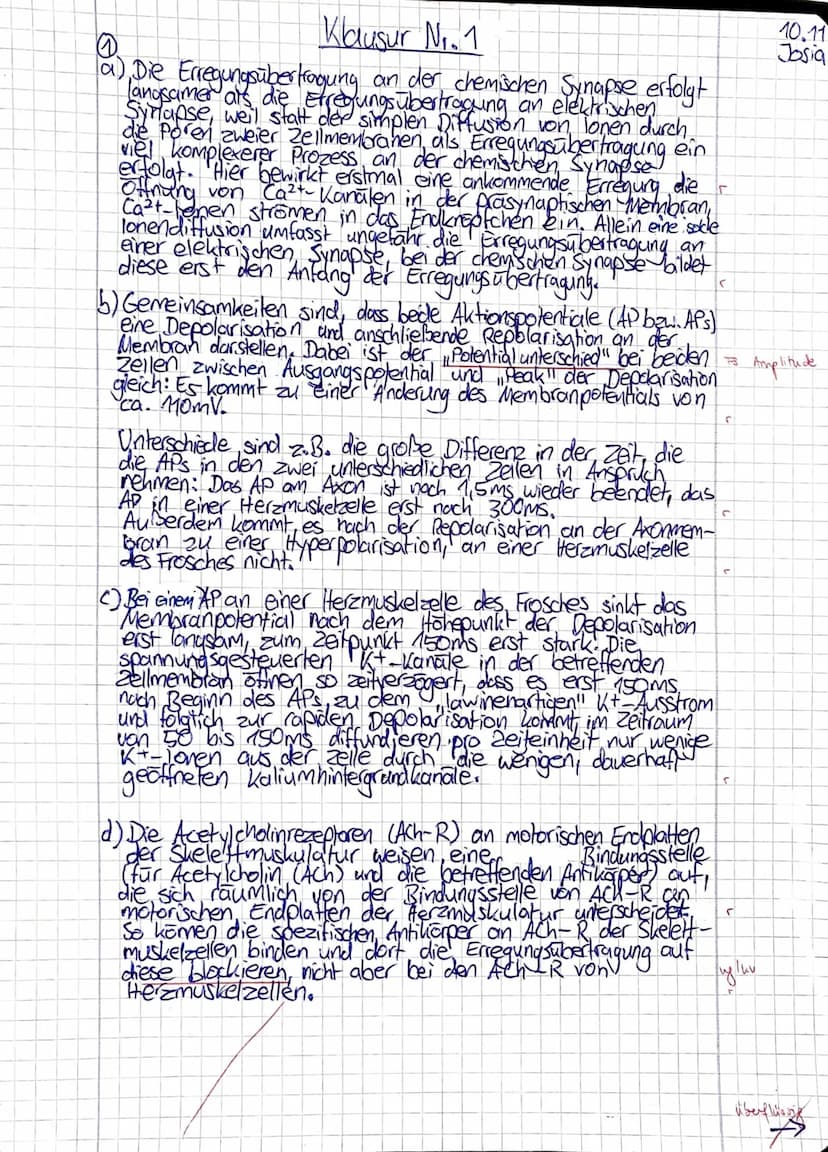 Klausur Nr. 1
10.11
Josia
①
a) Die Erregungsübertragung an der chemischen Synapse erfolgt
langsamer als die Erregungsübertragung an elektrischen
Synapse, weil statt der simplen Diffusion von Ionen durch
die Poren zweier Zellmembranen als Erregungsübertragung ein
viel komplexerer Prozess an der chemischen Synapse
erfolgt. Hier bewirkt erstmal eine ankommende Erregung die
r
Öffnung von Ca²⁺-Kanälen in der präsynaptischen Membran,
Ca²⁺-Ionen strömen in das Endknöpfchen ein. Allein eine solche
Ionendiffusion umfasst ungefähr die Erregungsübertragung an
einer elektrischen Synapse, bei der chemischen Synapse bildet
diese erst den Anfang der Erregungsübertragung.
r
b) Gemeinsamkeiten sind, dass beide Aktionspotentiale (AP bzw. APs)
eine Depolarisation und anschließende Repolarisation an der
Membran darstellen. Dabei ist der „Potentialunterschied" bei beiden
⇒ Amplitude
Zellen zwischen Ausgangspotential und „Peak" der Depolarisation
gleich: Es kommt zu einer Änderung des Membranpotentials von
ca. 110mV.
r
Unterschiede sind z.B. die große Differenz in der Zeit, die
die APs in den zwei unterschiedlichen Zellen in Anspruch
nehmen: Das AP am Axon ist nach 1,5ms wieder beendet, das
AP in einer Herzmuskelzelle erst nach 300ms.
r
Außerdem kommt es nach der Repolarisation an der Axonmem-
bran zu einer Hyperpolarisation, an einer Herzmuskelzelle
des Frosches nicht.
r
c) Bei einem AP an einer Herzmuskelzelle des Frosches sinkt das
Membranpotential nach dem Höhepunkt der Depolarisation
erst langsam, zum Zeitpunkt 150ms erst stark. Die
spannungsgesteuerten K⁺-Kanäle in der betreffenden
Zellmembran öffnen so zeitverzögert, dass es erst 150ms
nach Beginn des APs zu dem „lawinenartigen" K⁺-Ausstrom
und folglich zur rapiden Depolarisation kommt, im Zeitraum
von 50 bis 150ms diffundieren pro Zeiteinheit nur wenige
K⁺-Ionen aus der Zelle durch die wenigen, dauerhaft
geöffneten Kaliumhintergrundkanäle.
r
d) Die Acetylcholinrezeptoren (Ach-R) an motorischen Endplatten
der Skelettmuskulatur weisen eine Bindungsstelle
(für Acetylcholin (ACh) und die betreffenden Antikörper) auf,
die sich räumlich von der Bindungsstelle von ACh-R an
motorischen Endplatten der Herzmuskulatur unterscheidet.
r
So können die spezifischen Antikörper an ACh-R der Skelett-
muskelzellen binden und dort die Erregungsübertragung auf
diese blockieren, nicht aber bei den ACh-R von
Herzmuskelzellen.
r
überflüssig